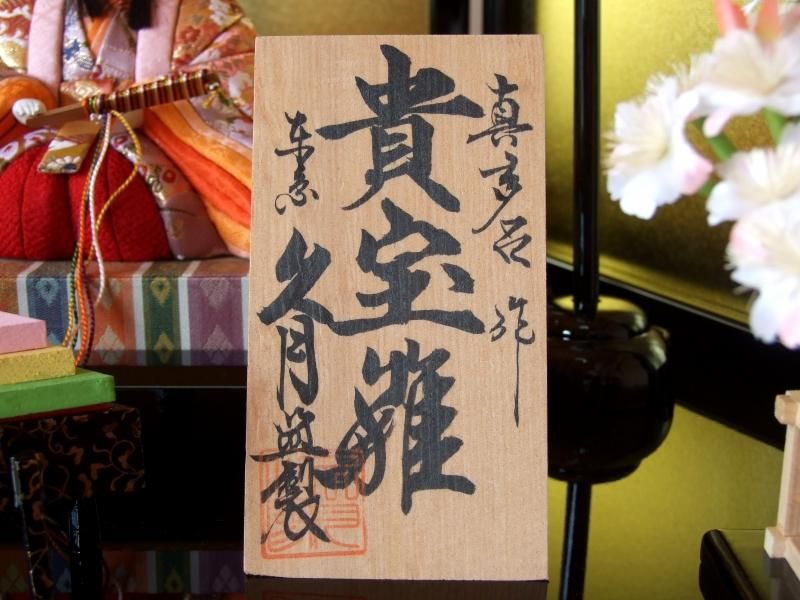 真多呂 作
貴宝雛
东京 久月監製